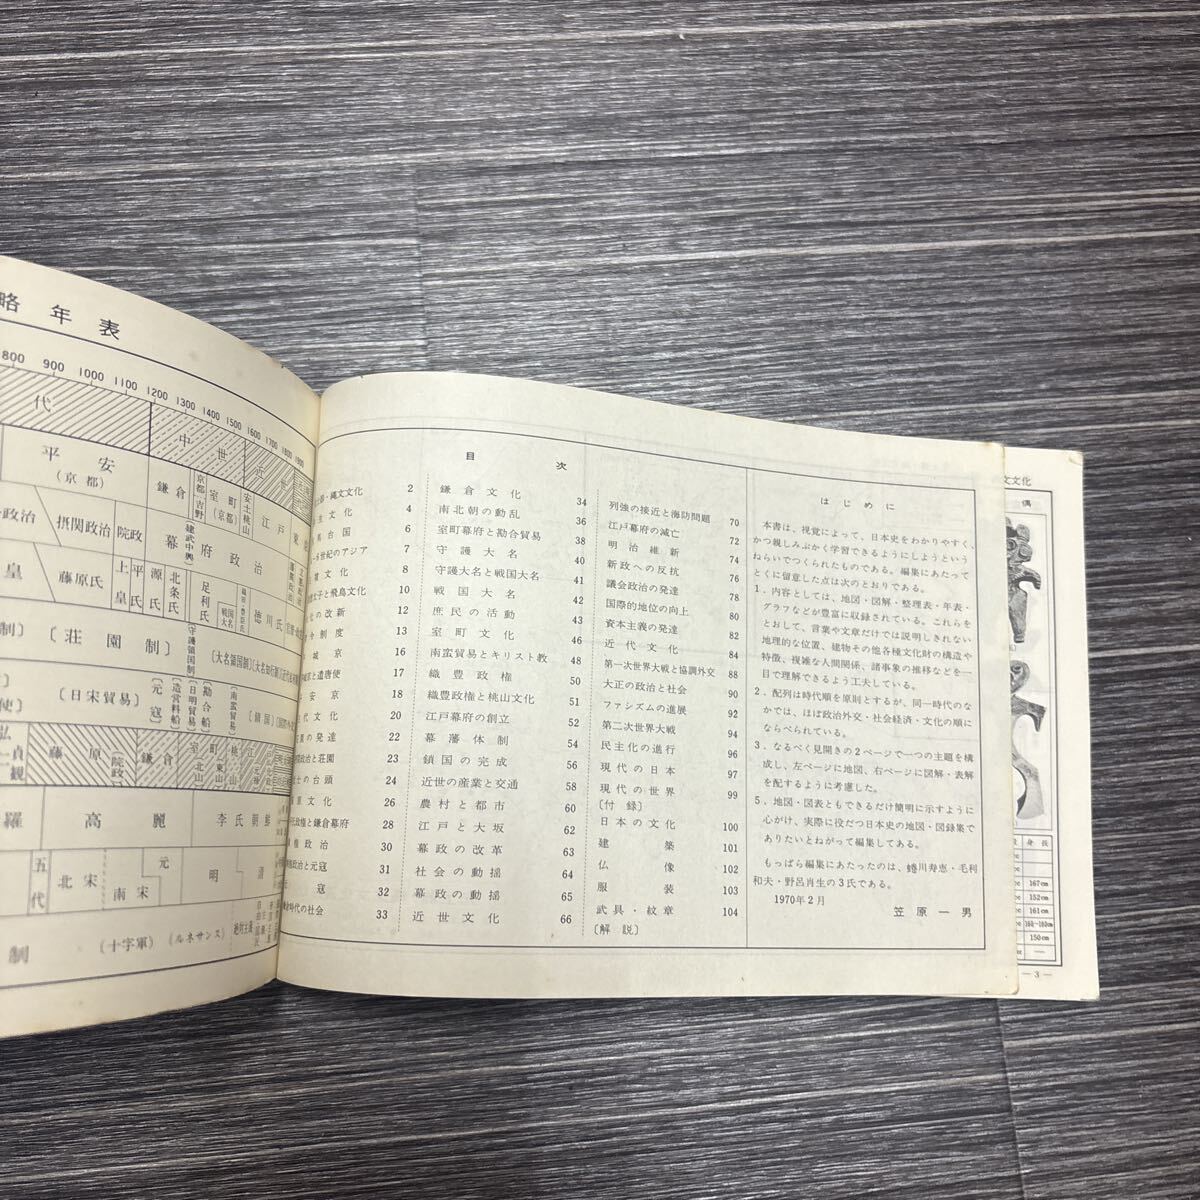 略年表
800 900 1000 1100 1200 1300 1400 1500 1600 1700 1800 1900
代 中世 近世
平安
(京都)
鎌倉
京都・吉野
室町
(京都)
安土桃山
江戸
政治 摂関政治 院政 建武中興 幕府政治
皇 藤原氏 上皇 平氏 源氏 北条氏 足利氏 戦国大名 織田・豊臣氏 徳川氏
制〕〔荘園制〕〔守護領国制〕〔大名領国制〕
〔日宋貿易〕〔元寇〕〔造営料船〕〔日明貿易〕〔勘合船〕〔南蛮貿易〕〔鎖国〕
弘
貞観 藤原 (院政) 鎌倉 室町(北山)(東山) 桃山 江戸
羅 高麗 李氏朝鮮
五代 北宋 南宋 元 明 清
制 (十字軍) (ルネサンス) 絶対主義
目次
・縄文文化 2
生文化 4
台国 6
世紀のアジア 7
文化 8
太子と飛鳥文化 10
の改新 12
令制度 13
城京 16
と遣唐使 17
安京 18
代文化 20
の発達 22
政治と荘園 23
士の台頭 24
原文化 26
政権と鎌倉幕府 28
権政治 30
政治と元寇 31
寇 32
時代の社会 33
鎌倉文化 34
南北朝の動乱 36
室町幕府と勘合貿易 38
守護大名 40
守護大名と戦国大名 41
戦国大名 42
庶民の活動 43
室町文化 46
南蛮貿易とキリスト教 48
織豊政権 50
織豊政権と桃山文化 51
江戸幕府の創立 52
幕藩体制 54
鎖国の完成 56
近世の産業と交通 58
農村と都市 60
江戸と大坂 62
幕政の改革 63
社会の動揺 64
幕政の動揺 65
近世文化 66
列強の接近と海防問題 70
江戸幕府の滅亡 72
明治維新 74
新政への反抗 76
議会政治の発達 78
国際的地位の向上 80
資本主義の発達 82
近代文化 84
第一次世界大戦と協調外交 88
大正の政治と社会 90
ファシズムの進展 92
第二次世界大戦 94
民主化の進行 96
現代の日本 97
現代の世界 99
〔付録〕
日本の文化 100
建築 101
仏像 102
服装 103
武具・紋章 104
〔解説〕
はじめに
本書は、視覚によって、日本史をわかりやすく、
かつ親しみぶかく学習できるようにしようという
ねらいでつくられたものである。編集にあたって
とくに留意した点は次のとおりである。
1．内容としては、地図・図解・整理表・年表・
グラフなどが豊富に収録されている。これらを
とおして、言葉や文章だけでは説明しきれない
地理的な位置、建物その他各種文化財の構造や
特徴、複雑な人間関係、諸事象の推移などを一
目で理解できるよう工夫している。
2．配列は時代順を原則とするが、同一時代のな
かでは、ほぼ政治外交・社会経済・文化の順に
ならべられている。
3．なるべく見開きの2ページで一つの主題を構
成し、左ページに地図、右ページに図解・表解
を配するように考慮した。
5．地図・図表ともできるだけ簡明に示すように
心がけ、実際に役だつ日本史の地図・図録集で
ありたいとねがって編集してある。
もっぱら編集にあたったのは、蜷川寿恵・毛利
和夫・野呂肖生の3氏である。
1970年2月
笠原一男
文文化
偶
身長
167cm
152cm
161cm
150cm
— 3 —